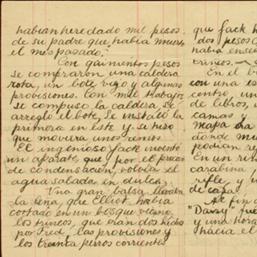 habian heredado mil pesos
de su padre que había muerto
el mes pasado.
Con quinientos pesos
se compraron una caldera
rota, un bote viejo y algunas
provisiones. Con mil trabajos
se compuso la caldera, se
arregló el bote, se instaló la
primera en este y se hizo
que moviera unos remos.
El ingenioso Jack inventó
un aparato que por el proceso
de condensación, volvía el
agua salada en dulce.
Una gran balsa llevaba
la leña que Elliot había
cortado en un bosque vecino,
los trincos, que eran dos hechos
por Fred, las provisiones y
los treinta pesos
que Jack h
dos pesos c
había ense
En el bo
con una es
de libros, u
camas y
mapa
donde
podían re
En un rin
carabina,
rifle, y un
de capa
"Daisy
y una hora
hacia el